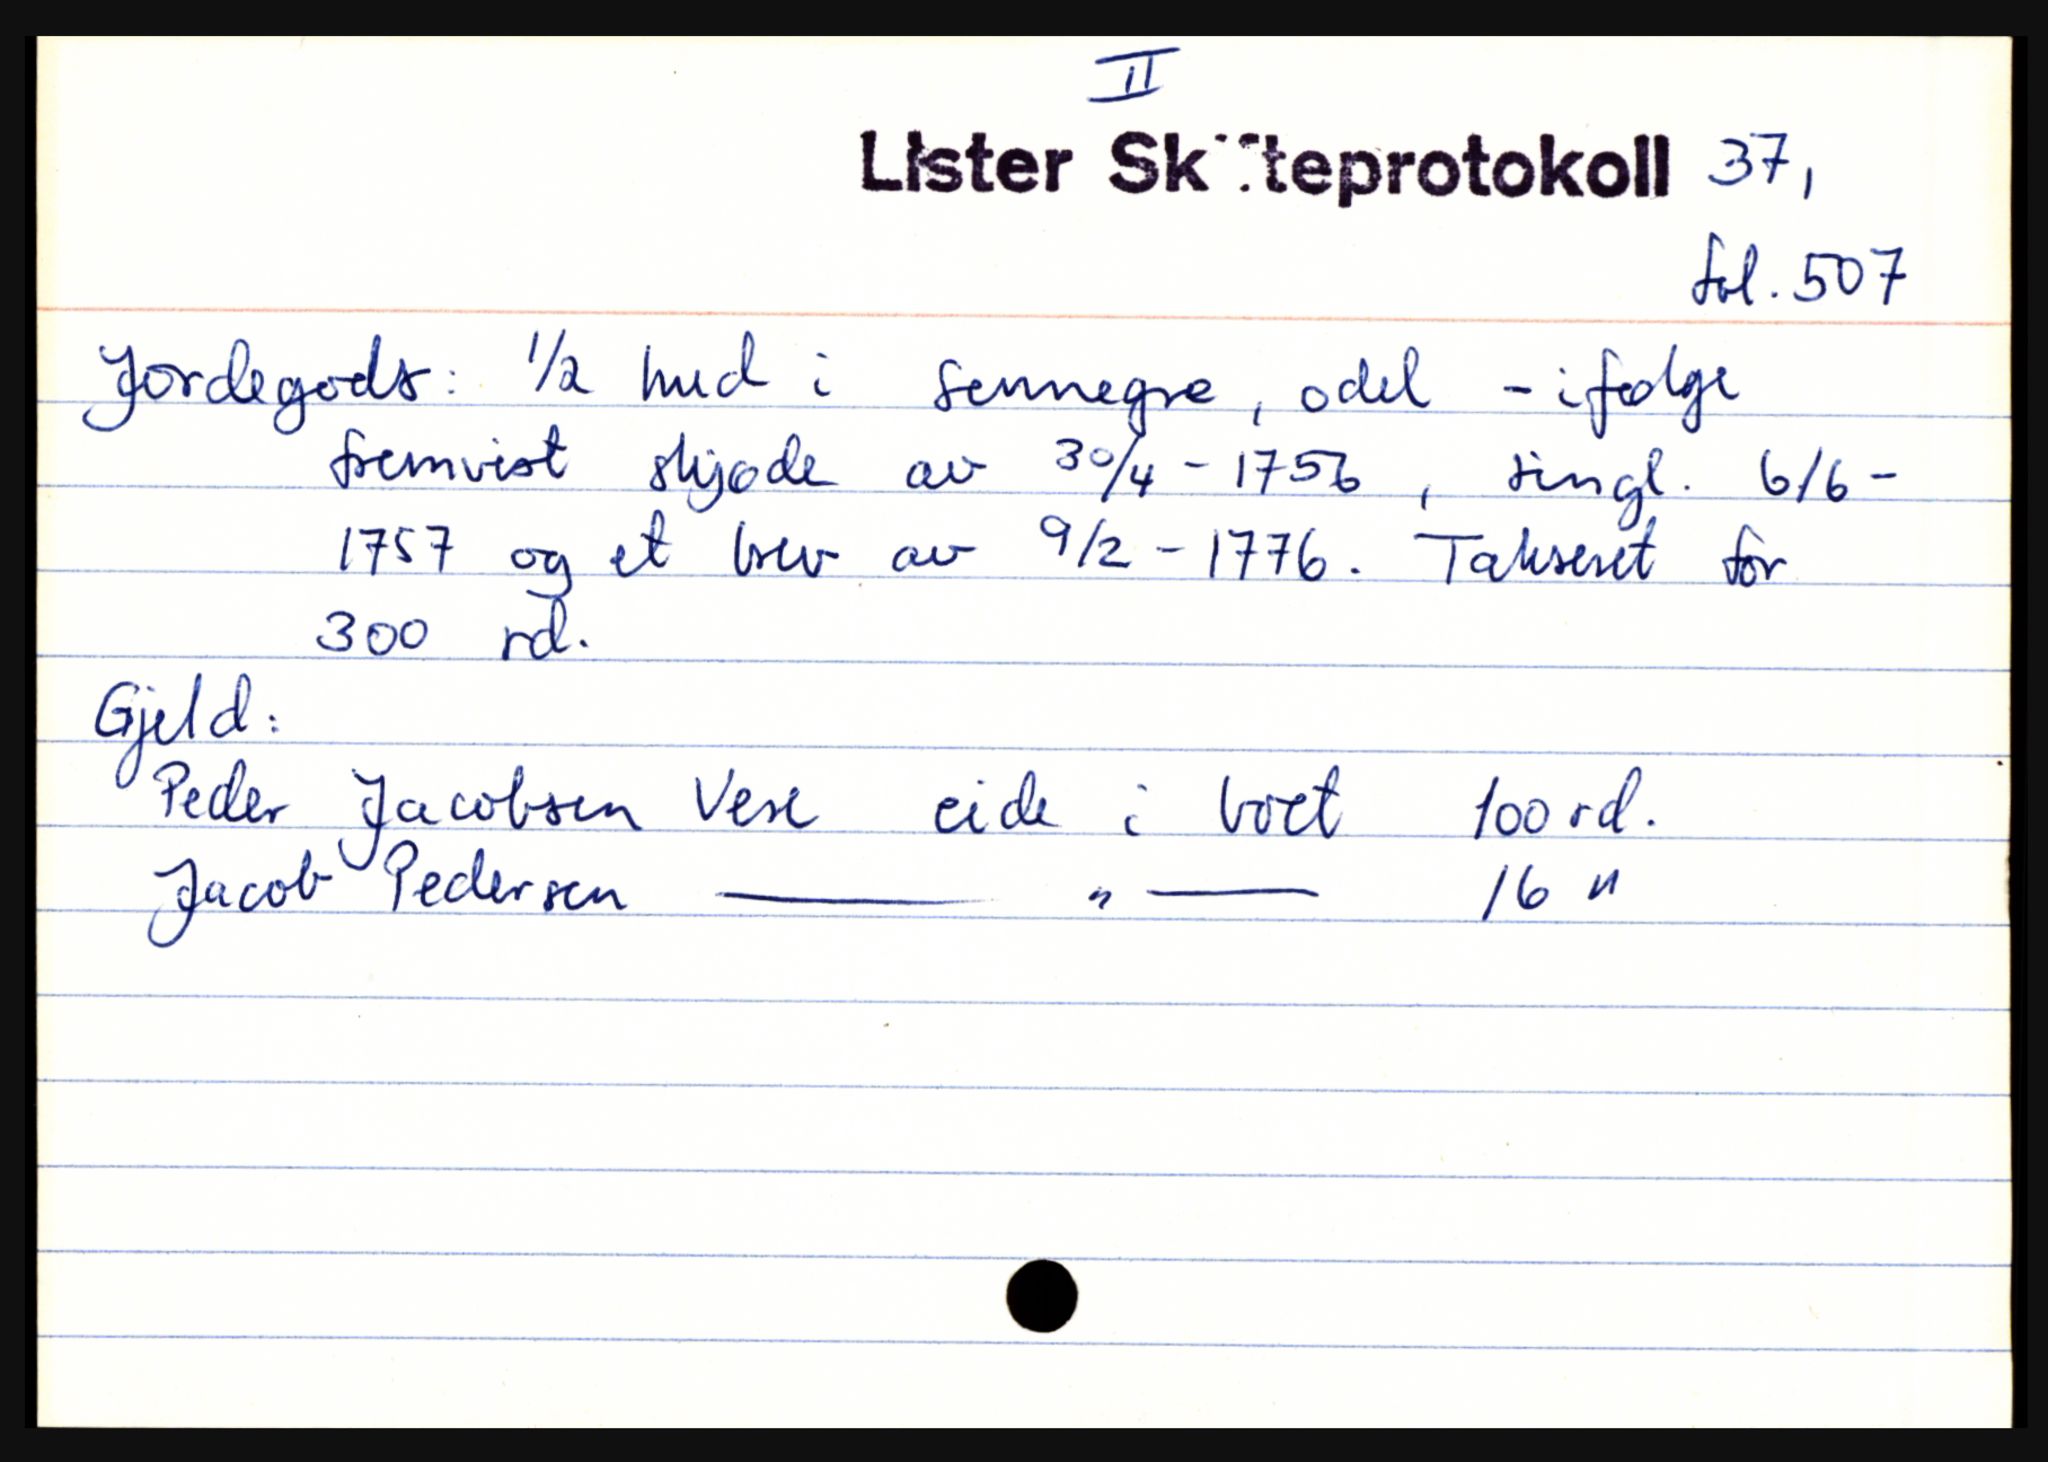 II
Lister Skifteprotokoll 37,
fol. 507
Jordegods: 1/2 hud i Sennegre, odel - ifølge
fremvist skjøde av 30/4 - 1756, tingl. 6/6 -
1757 og et brev av 9/2 - 1776. Takseret for
300 rd.
Gjeld:
Peder Jacobsen Vere eide i boet 100 rd.
Jacob Pedersen — " — 16 "